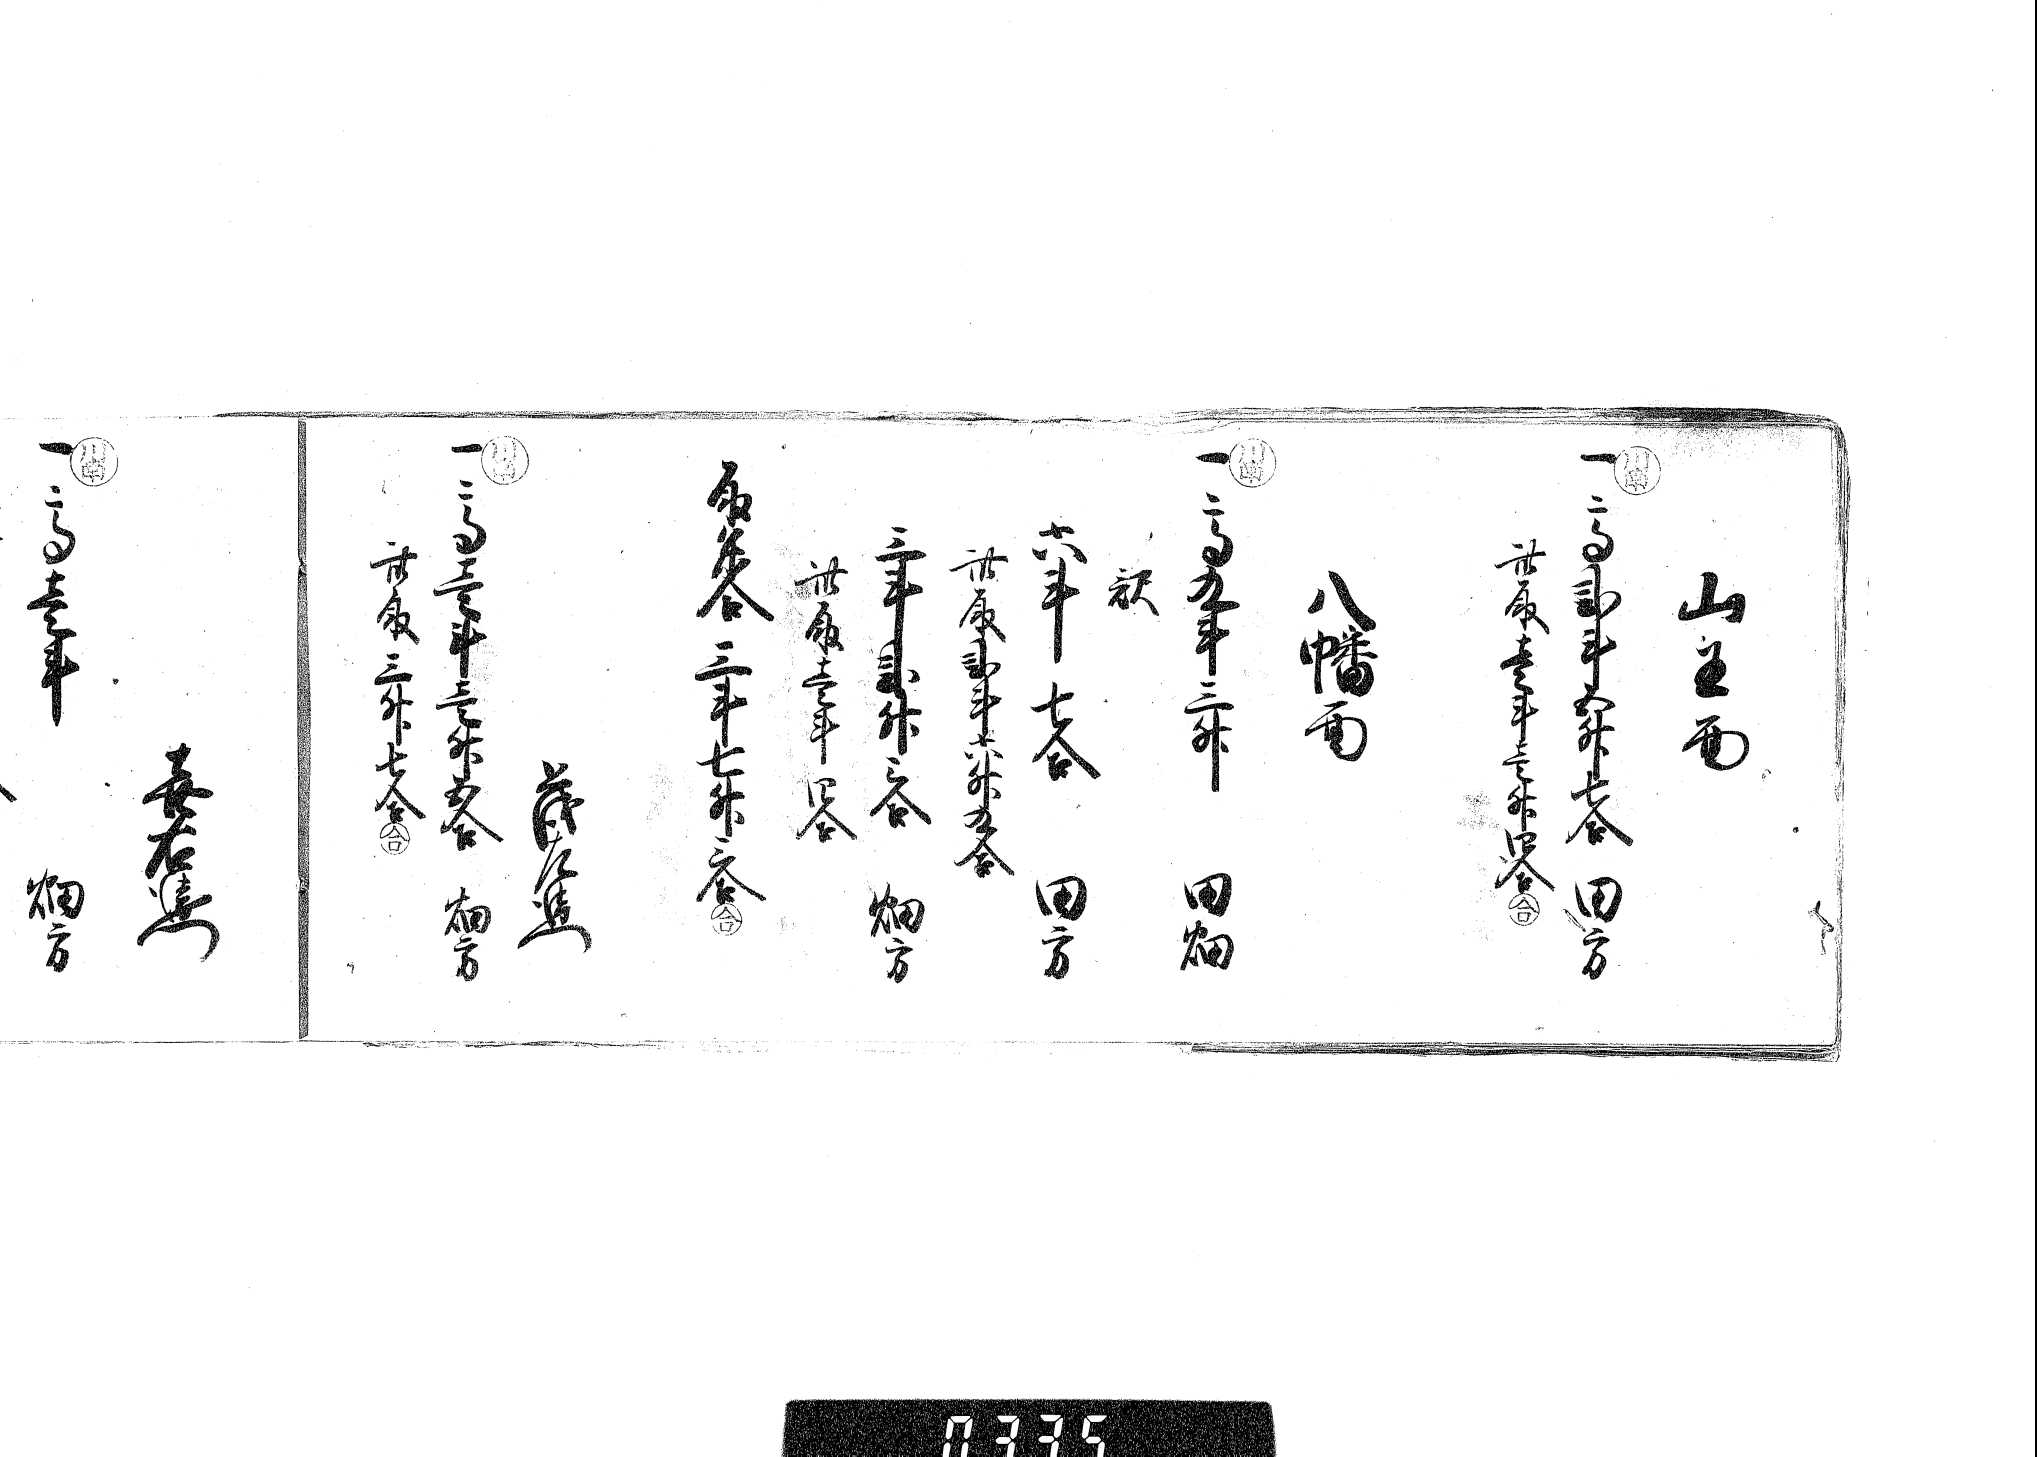 山主面
一高弐斗五升七合 田方
此取壱斗壱升四合
八幡面
一高九斗三升 田畑
訳
六斗七合 田方
此取弐斗六升九合
三斗弐升三合 畑方
此取壱斗四合
取米合三斗七升三合
茂左衛門
一高壱斗壱升五合 畑方
此取三升七合
喜右衛門
一高壱斗 畑方
0335